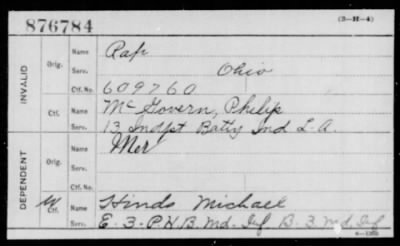 876784
(3-H-4)
INVALID
Orig. Name Pap
Serv. Ohio
Ctf. No. 609760
Ctf. Name McGovern, Philip
Serv. 13 Indpt Batty Ind L. A.
DEPENDENT
Orig. Name Mer
Serv.
Ctf. No.
W Ctf. Name Hinds Michael
Serv. E. 3-P.H.B. Md. Inf B. 3 Md. Inf